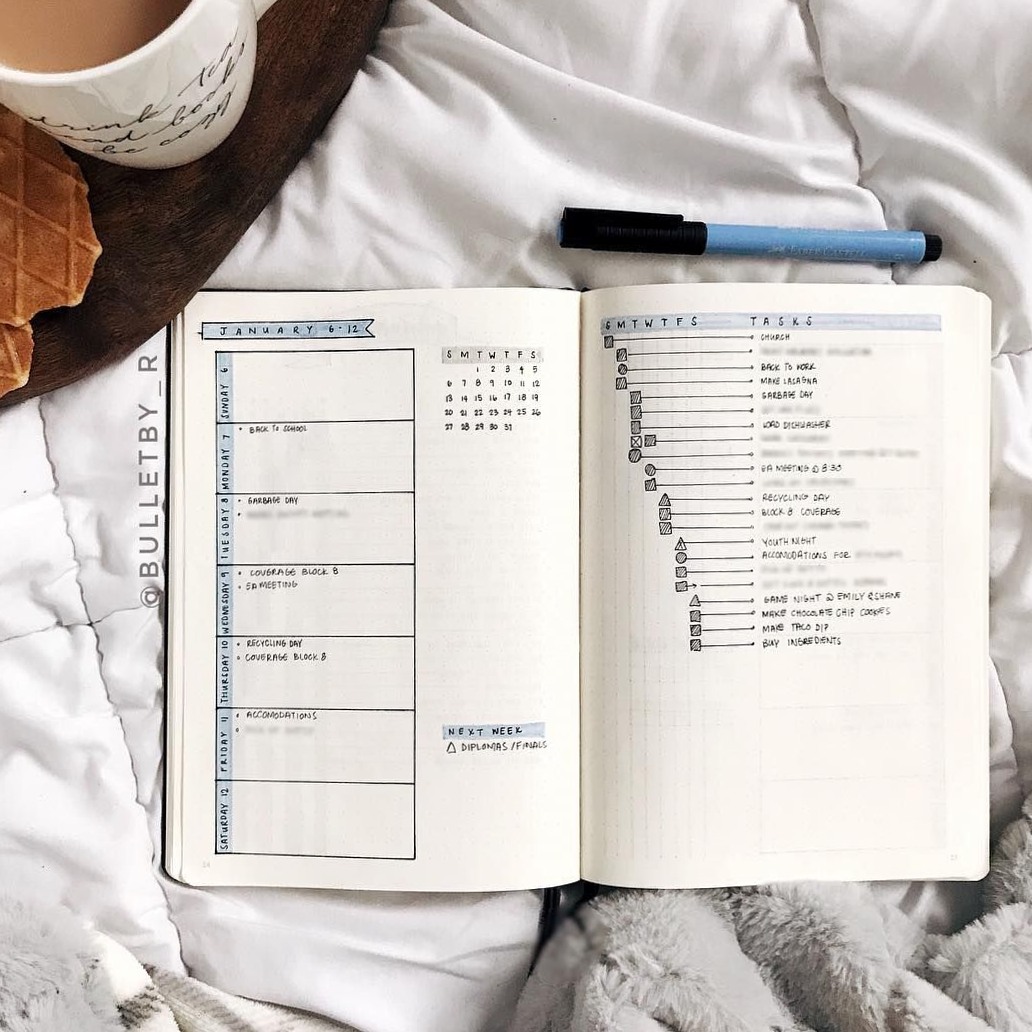 drink tea
read books
be cozy
FABER-CASTELL
@BULLETBY_R
JANUARY 6-12
SUNDAY 6
MONDAY 7
• BACK TO SCHOOL
TUESDAY 8
• GARBAGE DAY
WEDNESDAY 9
• COVERAGE BLOCK 8
• EA MEETING
THURSDAY 10
• RECYCLING DAY
• COVERAGE BLOCK 8
FRIDAY 11
• ACCOMODATIONS
SATURDAY 12
S M T W T F S
1 2 3 4 5
6 7 8 9 10 11 12
13 14 15 16 17 18 19
20 21 22 23 24 25 26
27 28 29 30 31
NEXT WEEK
△ DIPLOMAS/FINALS
S M T W T F S TASKS
CHURCH
BACK TO WORK
MAKE LASAGNA
GARBAGE DAY
LOAD DISHWASHER
EA MEETING @ 8:30
RECYCLING DAY
BLOCK 8 COVERAGE
YOUTH NIGHT
ACCOMODATIONS FOR
GAME NIGHT @ EMILY & SHANE
MAKE CHOCOLATE CHIP COOKIES
MAKE TACO DIP
BUY INGREDIENTS